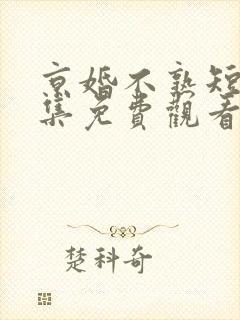 京婚不熟短
集免費觀看
楚科奇